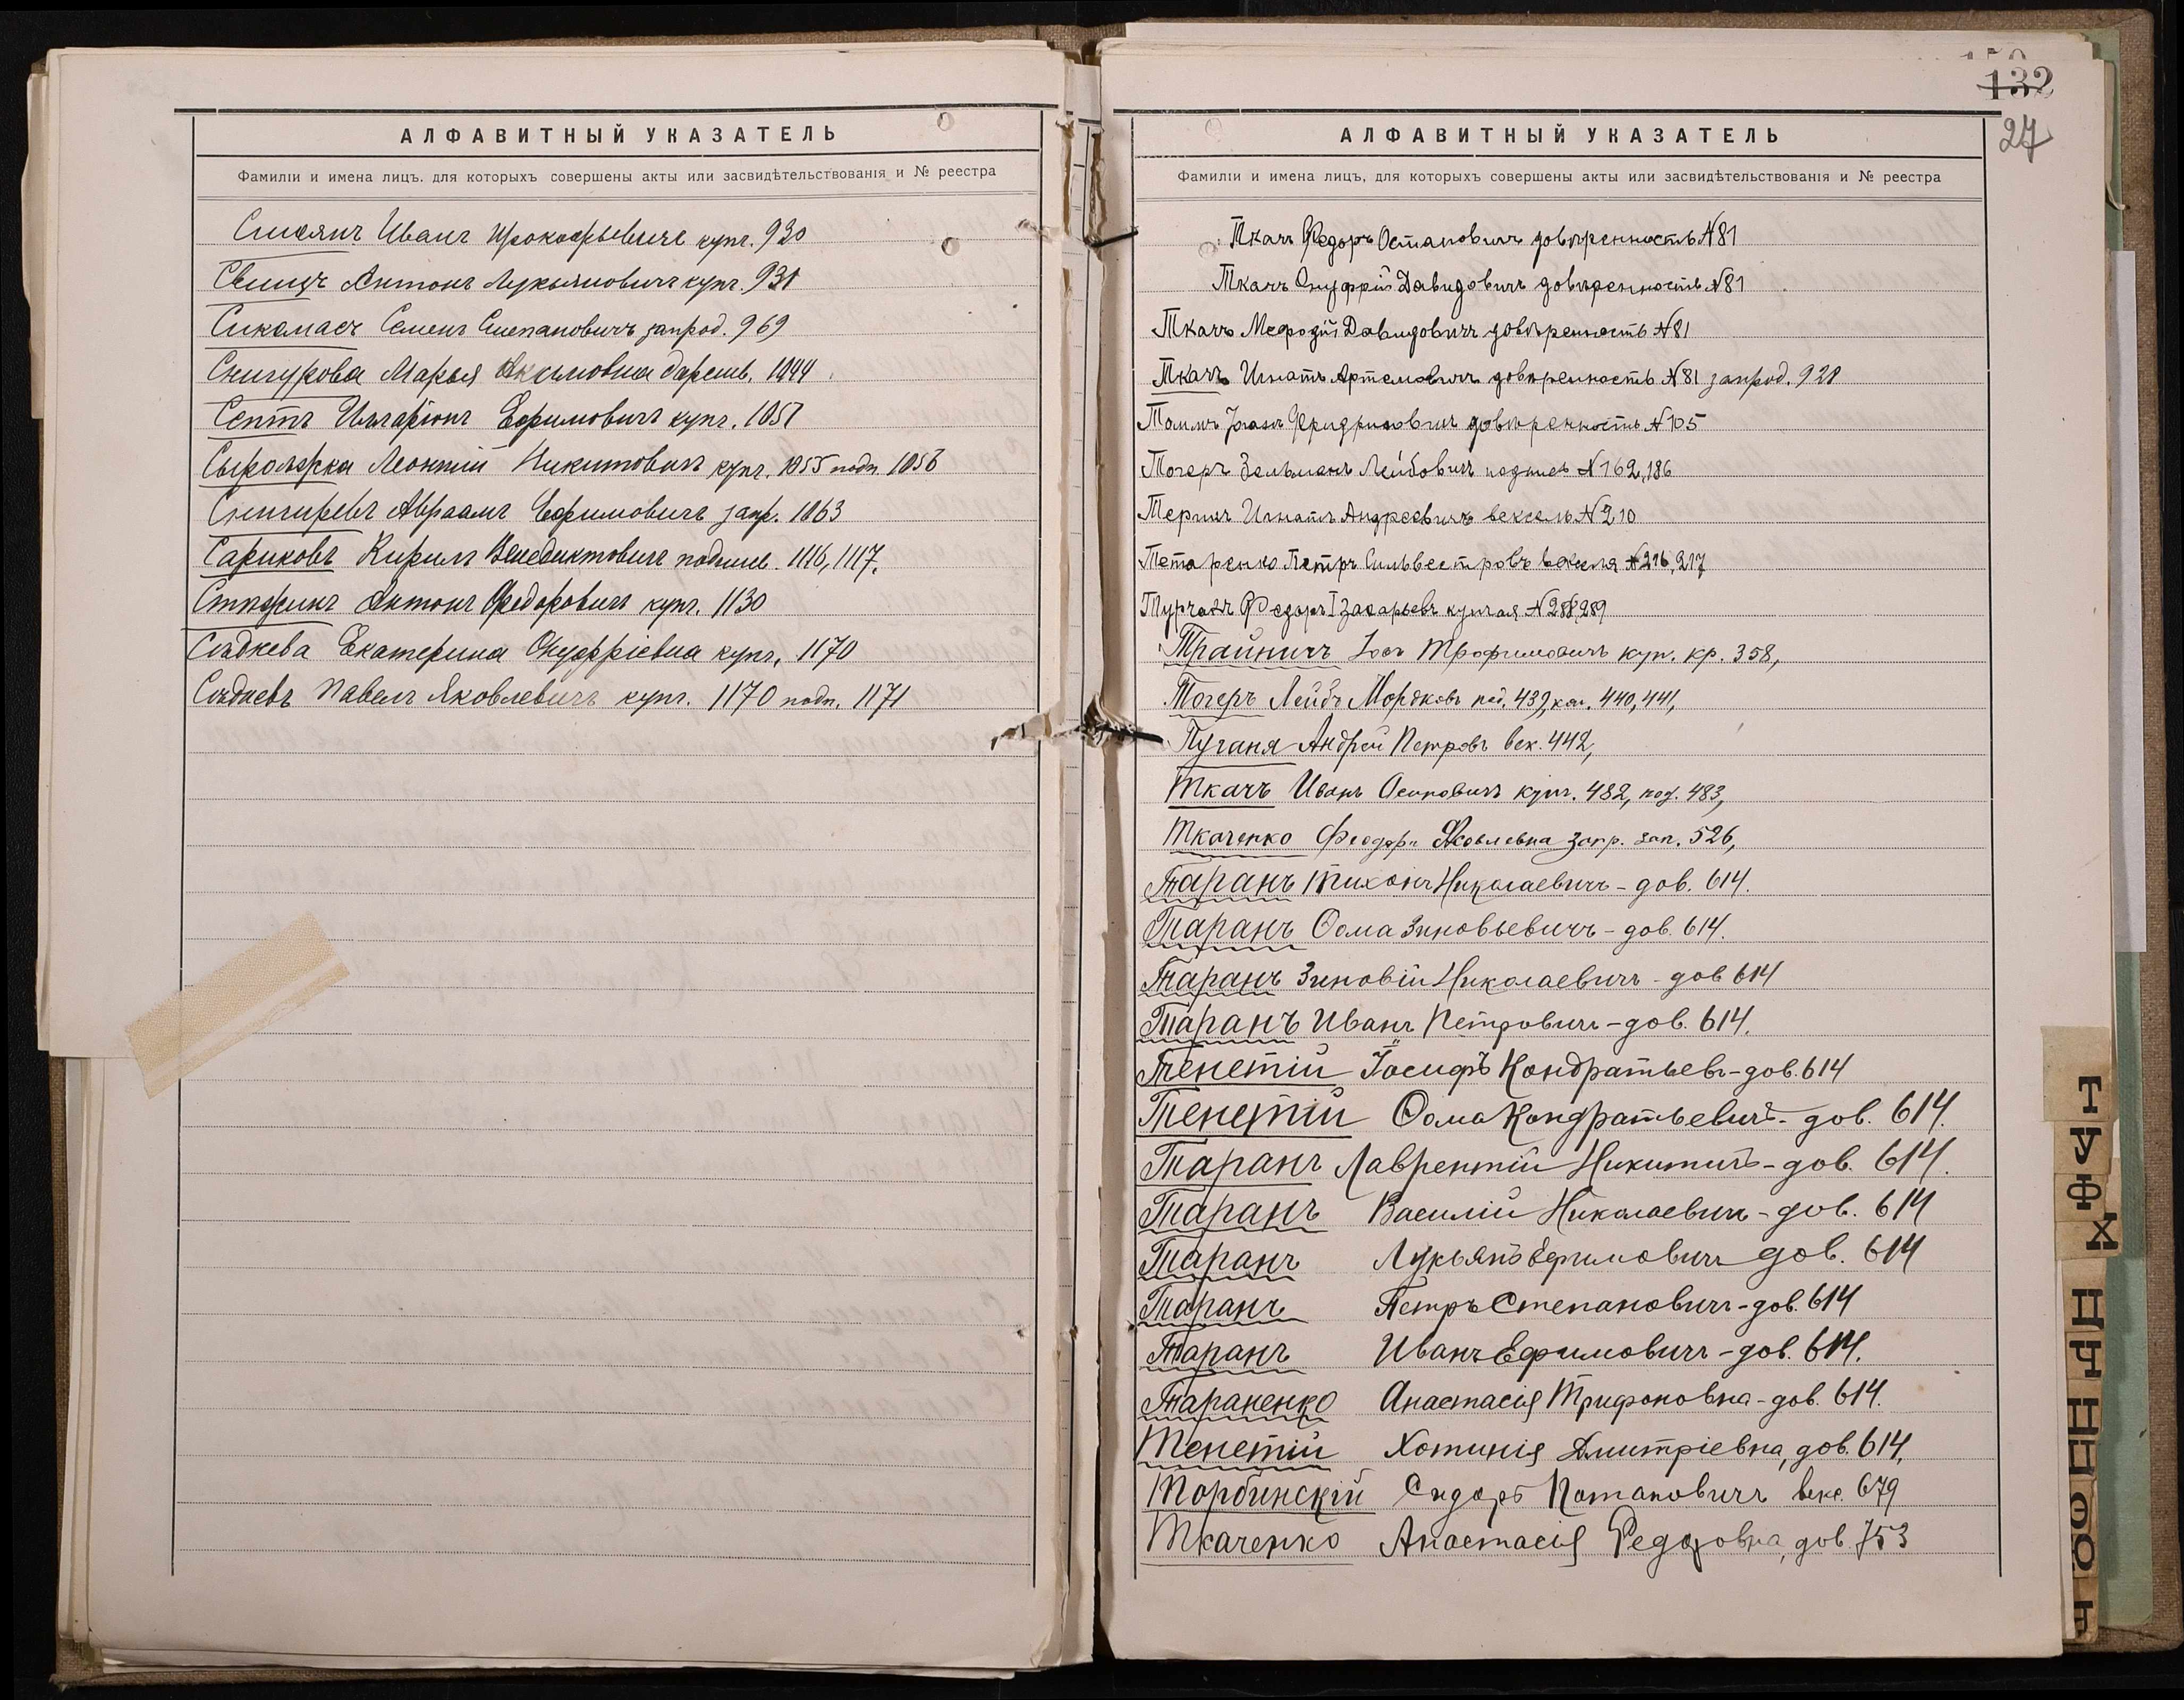 АЛФАВИТНЫЙ УКАЗАТЕЛЬ
Фамиліи и имена лицъ, для которыхъ совершены акты или засвидѣтельствованія и № реестра
Иванъ Прокофьевичъ купч. 930
Антонъ Лукьяновичъ купч. 931
Семенъ Степановичъ запрод. 969
Снигурова Марья Акимовна дарств. 1044
Септъ Илларіонъ Ефимовичъ купч. 1057
Леонтій Никитовичъ купч. 1055 подп. 1056
Снигиревъ Авраамъ Ефимовичъ запр. 1063
Сариковъ Кирилъ Венедиктовичъ подпись. 1116, 1117.
Антонъ Федоровичъ купч. 1130
Екатерина Онуфріевна купч. 1170
Павелъ Яковлевичъ купч. 1170 подп. 1171
132
27
АЛФАВИТНЫЙ УКАЗАТЕЛЬ
Фамиліи и имена лицъ, для которыхъ совершены акты или засвидѣтельствованія и № реестра
Ткачъ Федоръ Остаповичъ довѣренность №81
Ткачъ Онуфрій Давидовичъ довѣренность №81
Ткачъ Мефодій Давидовичъ довѣренность №81
Ткачъ Игнатъ Артемовичъ довѣренность №81 запрод. 928
довѣренность №105
Тогеръ Зельманъ Лейбовичъ подпись №162,186
Игнатъ Андреевичъ вексель №210
Петръ Сильвестровъ векселя №216,217
Федоръ Захарьевъ купчая №288,289
Трайничъ Трофимовичъ куп. кр. 358,
Тогеръ Лейбъ Мордковъ под. 439, коп. 440, 441,
Андрей Петровъ век. 442,
Ткачъ Иванъ Осиповичъ купч. 482, под. 483,
Ткаченко Яковлевна запр. зап. 526,
Таранъ Тихонъ Николаевичъ - дов. 614.
Таранъ Ѳома Зиновьевичъ - дов. 614.
Таранъ Зиновій Николаевичъ - дов 614
Таранъ Иванъ Петровичъ - дов. 614.
Тенетій Іосифъ Кондратьевъ - дов. 614
Тенетій Ѳома Кондратьевичъ - дов. 614.
Таранъ Лаврентій Никитичъ - дов. 614.
Таранъ Василій Николаевичъ - дов. 614
Таранъ Лукьянъ Ефимовичъ дов. 614
Таранъ Петръ Степановичъ - дов. 614
Таранъ Иванъ Ефимовичъ - дов. 614.
Тараненко Анастасія Трифоновна - дов. 614.
Тенетій Хотинія Дмитріевна, дов. 614.
Торбинскій Сидоръ Потаповичъ векс. 679
Ткаченко Анастасія Федоровна, дов. 753
Т
У
Ф
Х
Ц
Ч